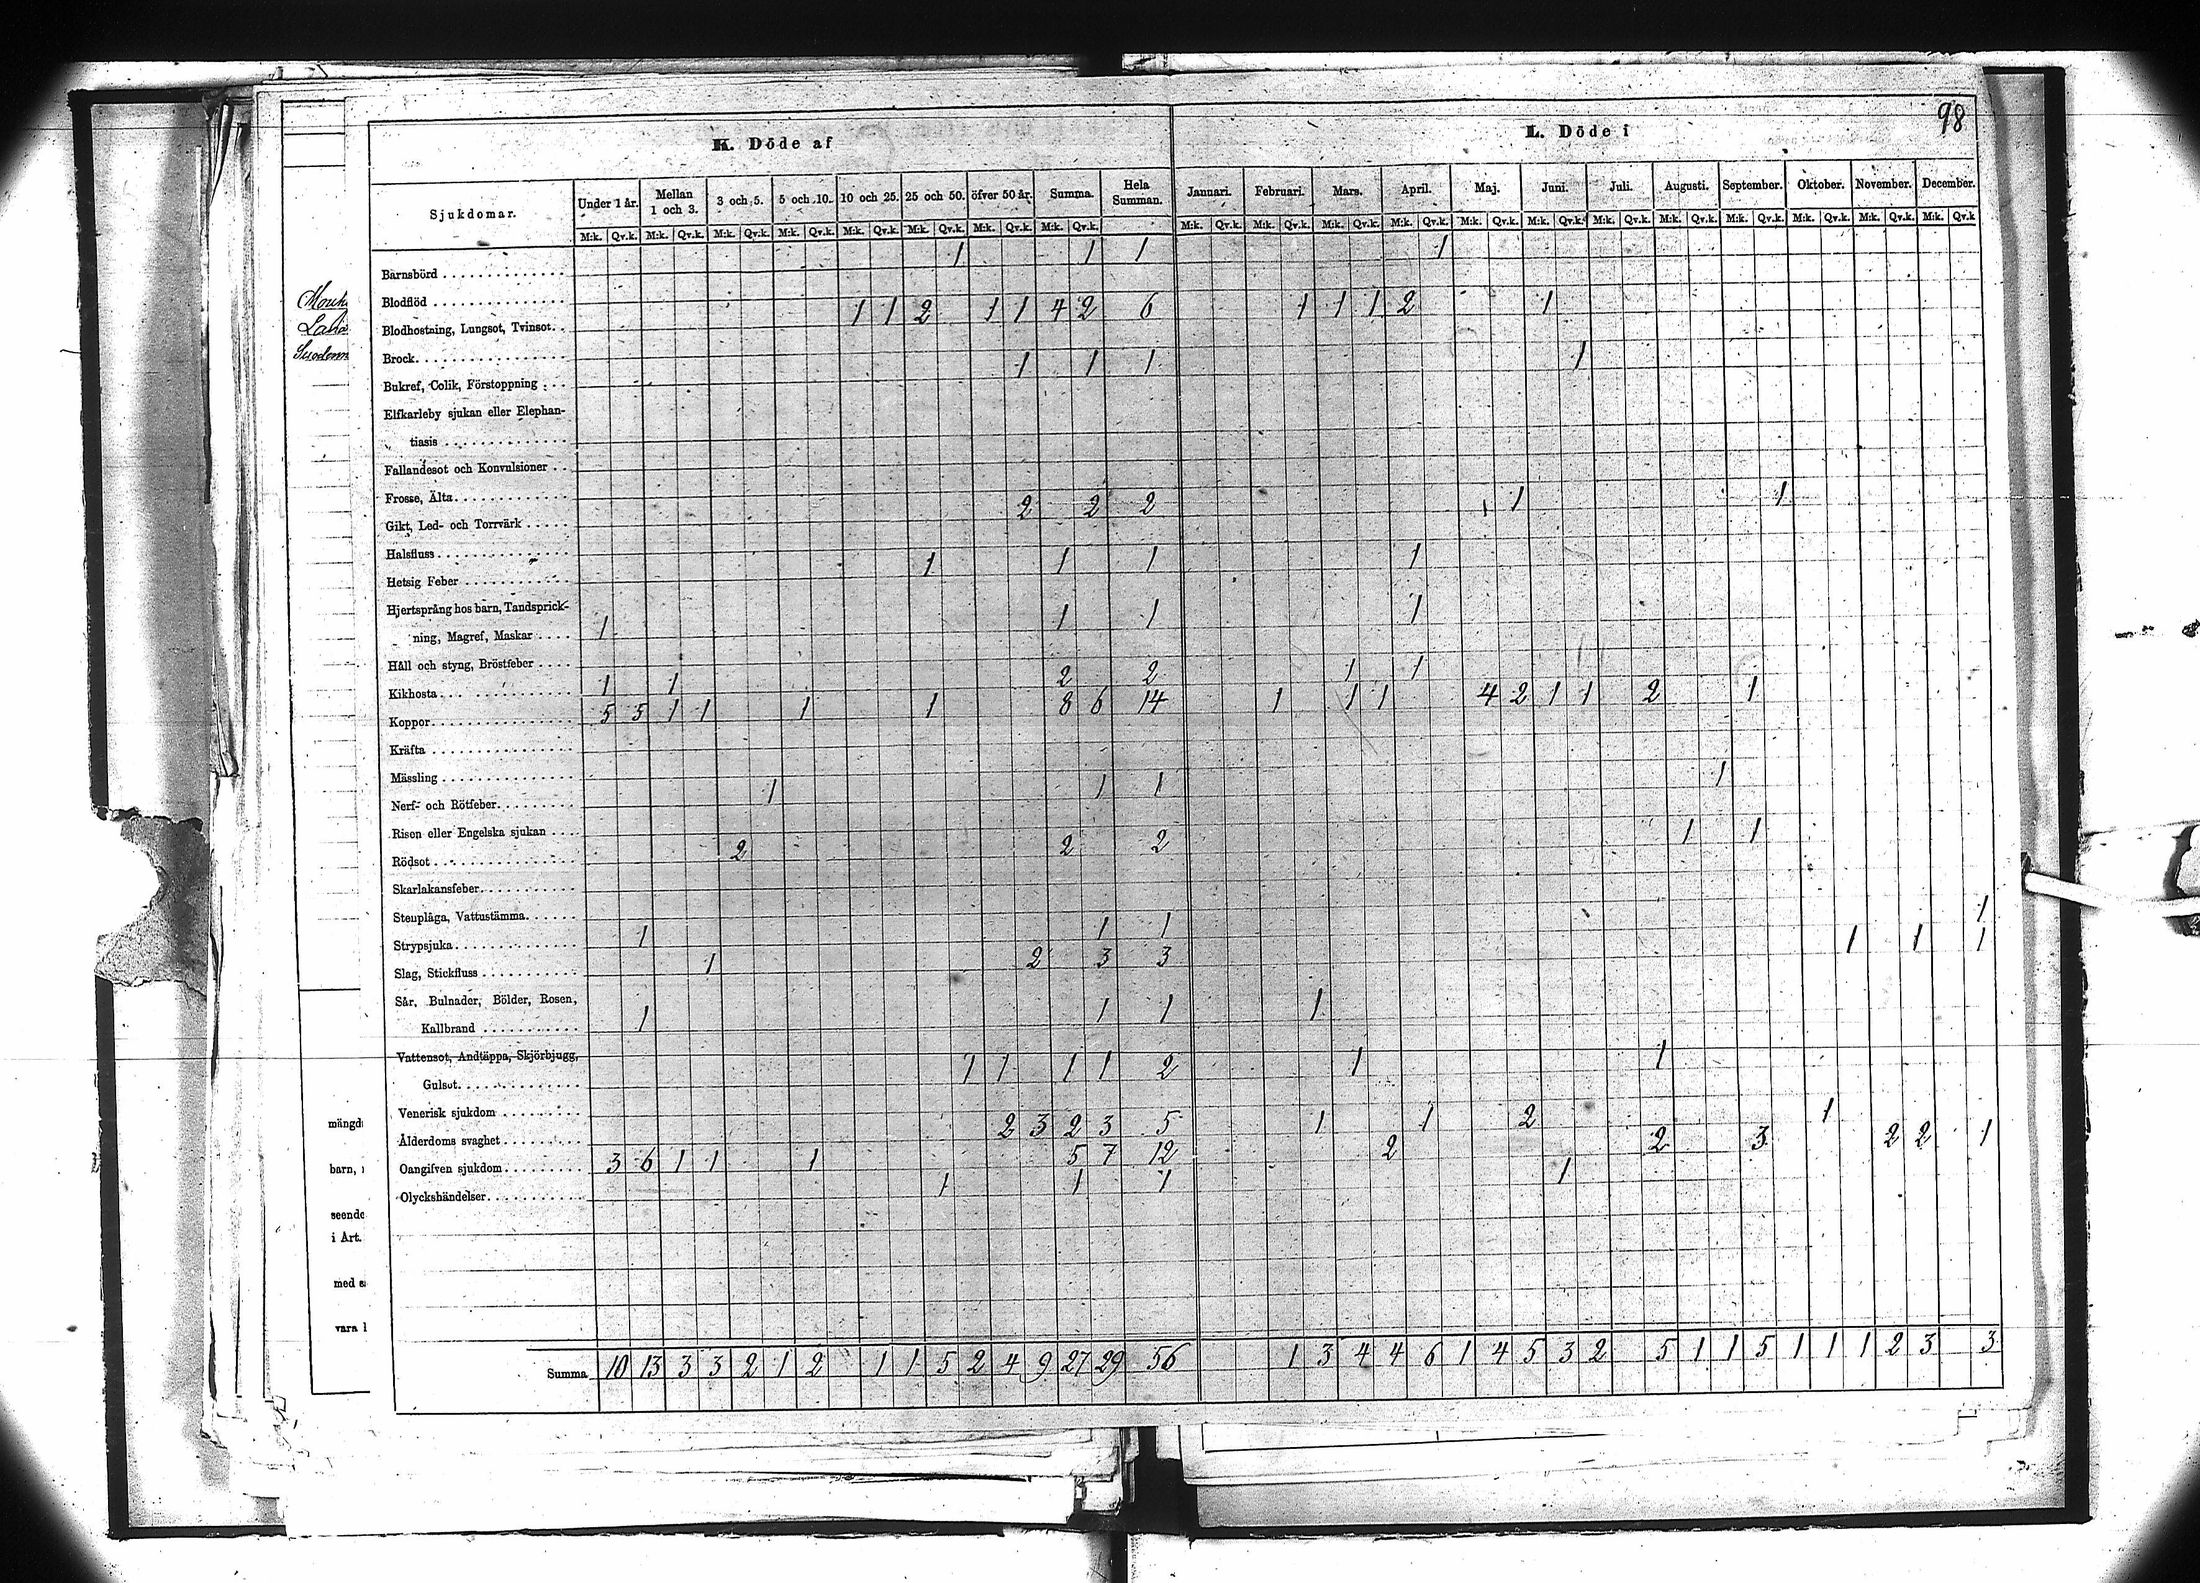 98
K. Döde af
L. Döde i
Sjukdomar. Under 1 år. Mellan 1 och 3. 3 och 5. 5 och 10. 10 och 25. 25 och 50. öfver 50 år. Summa. Hela Summan. Januari. Februari. Mars. April. Maj. Juni. Juli. Augusti. September. Oktober. November. December.
M:k. Qv.k. M:k. Qv.k. M:k. Qv.k. M:k. Qv.k. M:k. Qv.k. M:k. Qv.k. M:k. Qv.k. M:k. Qv.k. M:k. Qv.k. M:k. Qv.k. M:k. Qv.k. M:k. Qv.k. M:k. Qv.k. M:k. Qv.k. M:k. Qv.k. M:k. Qv.k. M:k. Qv.k. M:k. Qv.k. M:k. Qv.k. M:k. Qv.k
Barnsbörd 1 1 1 1
Blodflöd
Blodhostning, Lungsot, Tvinsot. 1 1 2 1 1 4 2 6 1 1 1 2 1
Brock
Bukref, Colik, Förstoppning 1 1 1 1
Elfkarleby sjukan eller Elephan-
tiasis
Fallandesot och Konvulsioner
Frosse, Älta
Gikt, Led- och Torrvärk 2 2 2 1 1
Halsfluss
Hetsig Feber 1 1 1 1
Hjertsprång hos barn, Tandsprick-
ning, Magref, Maskar 1 1 1 1
Håll och styng, Bröstfeber
Kikhosta 1 1 2 2 1 1
Koppor 5 5 1 1 1 1 8 6 14 1 1 1 4 2 1 1 2 1
Kräfta
Mässling
Nerf- och Rötfeber 1 1 1 1
Risen eller Engelska sjukan
Rödsot 2 2 2 1 1
Skarlakansfeber
Stenplåga, Vattustämma
Strypsjuka 1 1 1 1
Slag, Stickfluss 1 2 3 3 1 1 1
Sår, Bulnader, Bölder, Rosen,
Kallbrand 1 1 1 1
Vattensot, Andtäppa, Skjörbjugg,
Gulsot 1 1 1 1 2 1 1
Venerisk sjukdom
Ålderdoms svaghet 2 3 2 3 5 1 1 2 1
Oangifven sjukdom 3 6 1 1 1 5 7 12 2 2 3 2 2 1
Olyckshändelser 1 1 1 1
Summa 10 13 3 3 2 1 2 1 1 5 2 4 9 27 29 56 1 3 4 4 6 1 4 5 3 2 5 1 1 5 1 1 1 2 3 3
mängd
barn,
seende
i Art.
med
vara